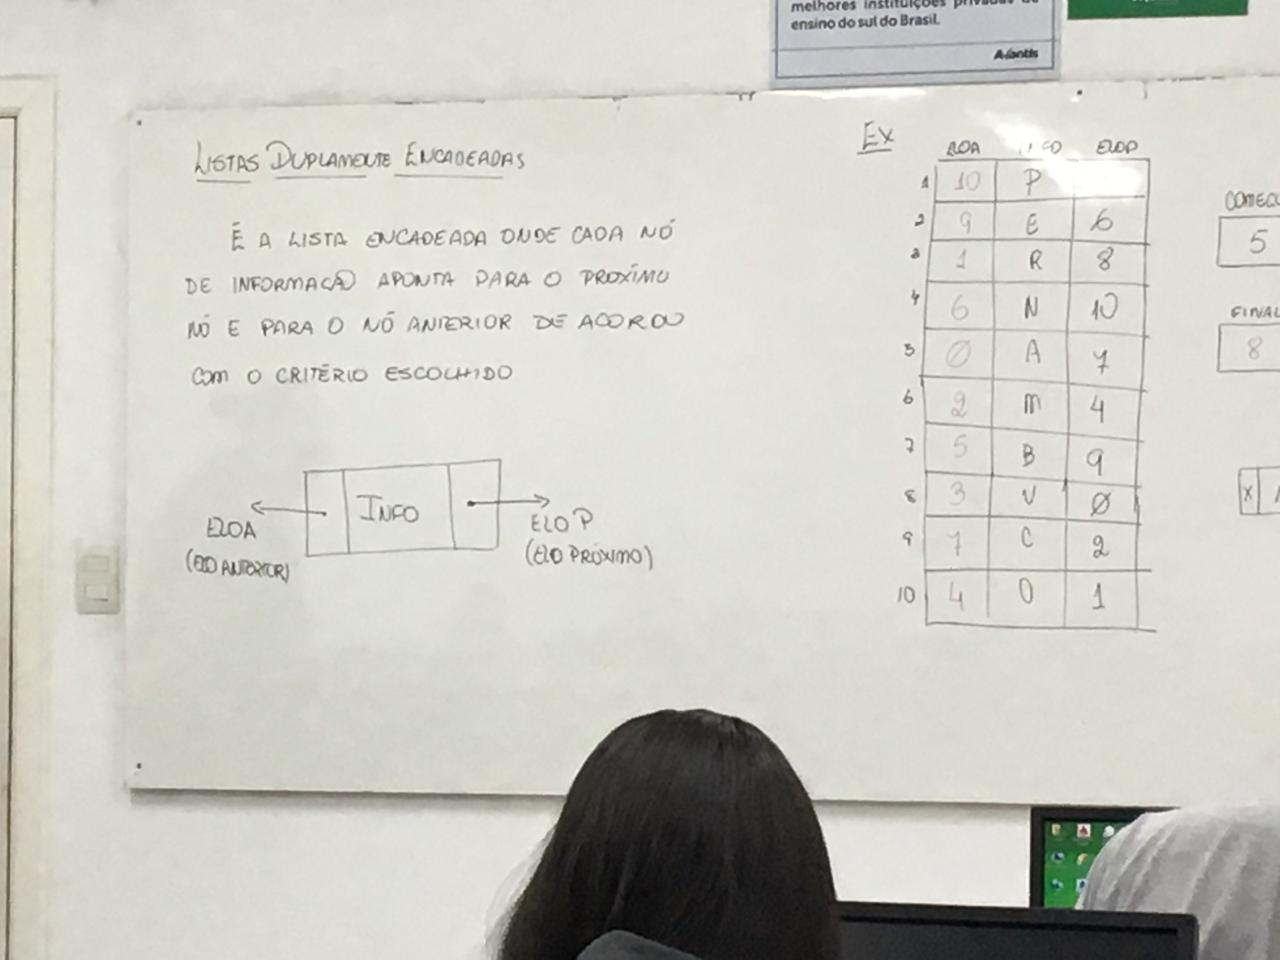 melhores instituições privadas de
ensino do sul do Brasil.
Avantis
LISTAS DUPLAMENTE ENCADEADAS
É A LISTA ENCADEADA ONDE CADA NÓ
DE INFORMAÇÃO APONTA PARA O PRÓXIMO
NÓ E PARA O NÓ ANTERIOR DE ACORDO
COM O CRITÉRIO ESCOLHIDO
INFO
ELOA
(ELO ANTERIOR)
ELOP
(ELO PRÓXIMO)
EX
ELOA INFO ELOP
1 10 P
2 9 E 6
3 1 R 8
4 6 N 10
5 0 A 7
6 2 M 4
7 5 B 9
8 3 V Ø
9 7 C 2
10 4 O 1
5
FINAL
8
X